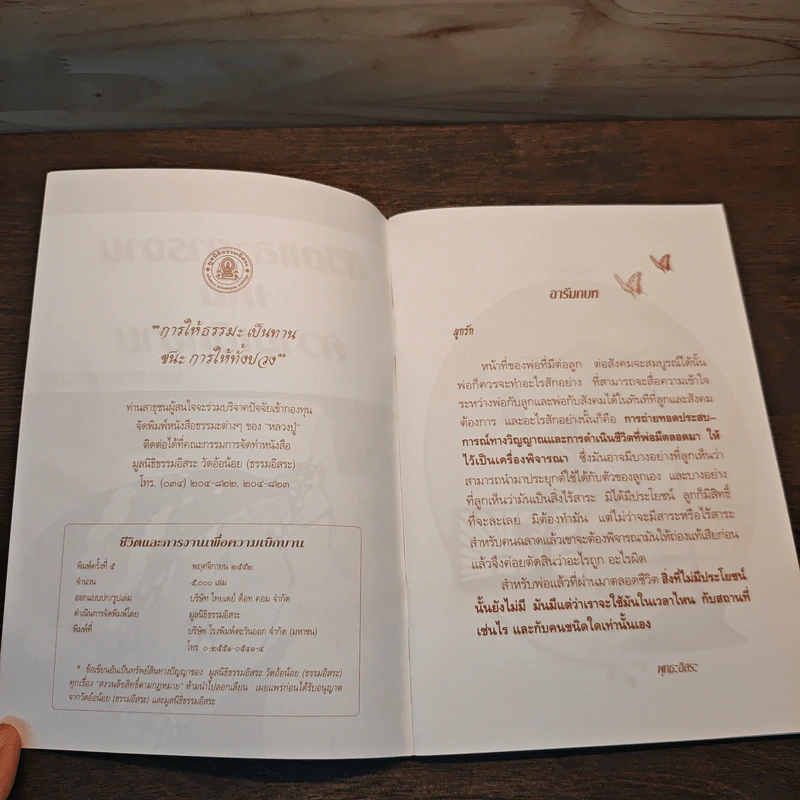 มูลนิธิธรรมอิสระ
"การให้ธรรมะเป็นทาน
ชนะการให้ทั้งปวง"
ท่านสาธุชนผู้สนใจจะร่วมบริจาคปัจจัยเข้ากองทุน
จัดพิมพ์หนังสือธรรมะต่างๆ ของ "หลวงปู่"
ติดต่อได้ที่คณะกรรมการจัดทำหนังสือ
มูลนิธิธรรมอิสระ วัดอ้อน้อย (ธรรมอิสระ)
โทร. (๐๓๔) ๒๐๔-๘๒๒, ๒๐๔-๘๒๓
ชีวิตและการงานเพื่อความเบิกบาน
พิมพ์ครั้งที่ ๕ พฤศจิกายน ๒๕๕๒
จำนวน ๕,๐๐๐ เล่ม
ออกแบบปก/รูปเล่ม บริษัท ไทยเดย์ ด็อท คอม จำกัด
ดำเนินการจัดพิมพ์โดย มูลนิธิธรรมอิสระ
พิมพ์ที่ บริษัท โรงพิมพ์ตะวันออก จำกัด (มหาชน)
โทร. ๐-๒๕๕๑-๐๕๔๑-๔
* ข้อเขียนอันเป็นทรัพย์สินทางปัญญาของ มูลนิธิธรรมอิสระ วัดอ้อน้อย (ธรรมอิสระ)
ทุกเรื่อง "สงวนลิขสิทธิ์ตามกฎหมาย" ห้ามนำไปลอกเลียน เผยแพร่ก่อนได้รับอนุญาต
จากวัดอ้อน้อย (ธรรมอิสระ) และมูลนิธิธรรมอิสระ
อารัมภบท
ลูกรัก
หน้าที่ของพ่อที่มีต่อลูก ต่อสังคมจะสมบูรณ์ได้นั้น
พ่อก็ควรจะทำอะไรสักอย่าง ที่สามารถจะสื่อความเข้าใจ
ระหว่างพ่อกับลูกและพ่อกับสังคมได้ในทันทีที่ลูกและสังคม
ต้องการ และอะไรสักอย่างนั้นก็คือ การถ่ายทอดประสบ-
การณ์ทางวิญญาณและการดำเนินชีวิตที่พ่อมีตลอดมา ให้
ไว้เป็นเครื่องพิจารณา ซึ่งมันอาจมีบางอย่างที่ลูกเห็นว่า
สามารถนำมาประยุกต์ใช้ได้กับตัวของลูกเอง และบางอย่าง
ที่ลูกเห็นว่ามันเป็นสิ่งไร้สาระ มิได้มีประโยชน์ ลูกก็มีสิทธิ์
ที่จะละเลย มิต้องทำมัน แต่ไม่ว่าจะมีสาระหรือไร้สาระ
สำหรับคนฉลาดแล้วเขาจะต้องพิจารณามันให้ถ่องแท้เสียก่อน
แล้วจึงค่อยตัดสินว่าอะไรถูก อะไรผิด
สำหรับพ่อแล้วที่ผ่านมาตลอดชีวิต สิ่งที่ไม่มีประโยชน์
นั้นยังไม่มี มันมีแต่ว่าเราจะใช้มันในเวลาไหน กับสถานที่
เช่นไร และกับคนชนิดใดเท่านั้นเอง
พุทธะอิสระ